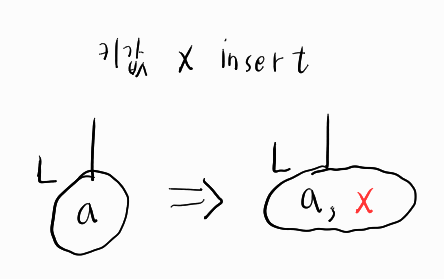 키값 x insert
L L
a a, x